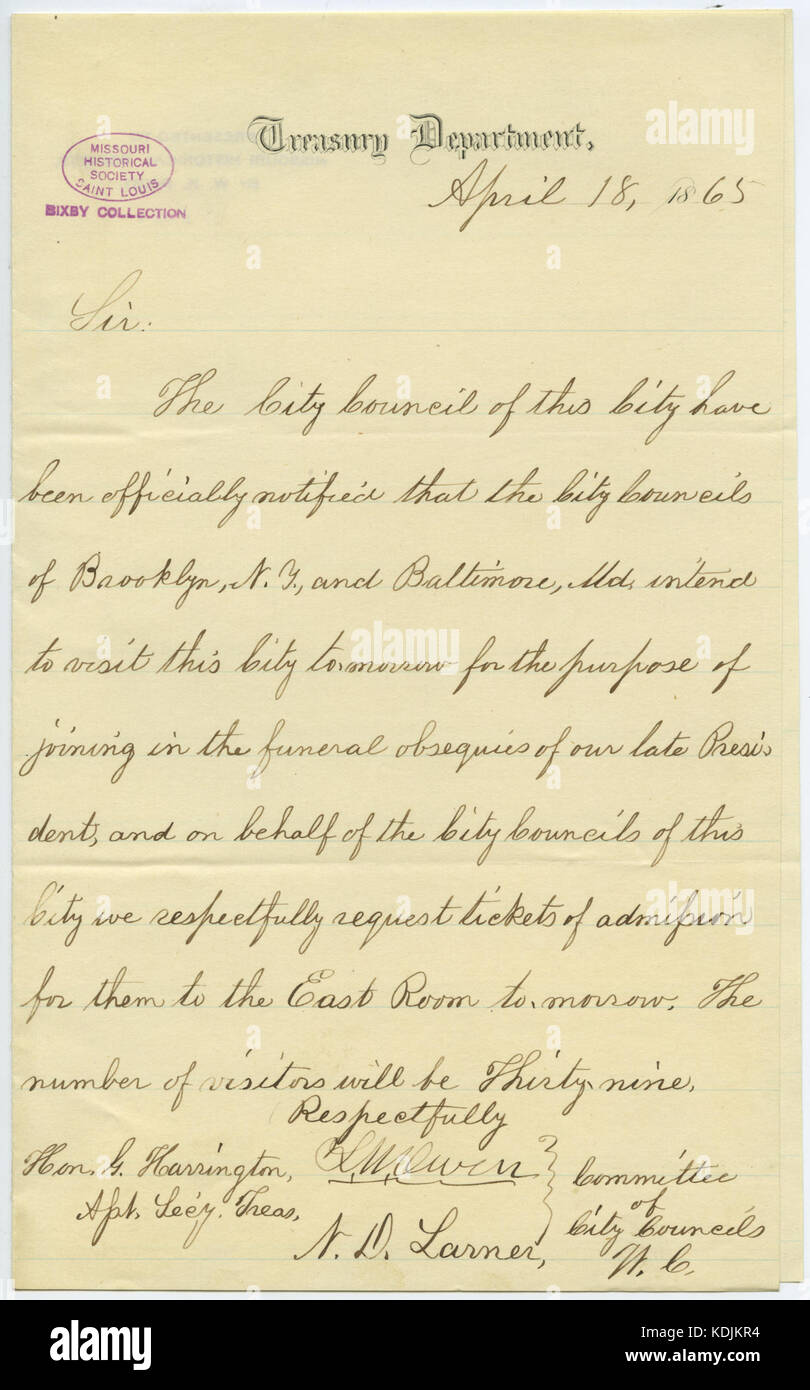 Treasury Department,
MISSOURI
HISTORICAL
SOCIETY
SAINT LOUIS
BIXBY COLLECTION
April 18, 1865
Sir:
The City Council of this City have
been officially notified that the City Councils
of Brooklyn, N.Y., and Baltimore, Md. intend
to visit this City to-morrow for the purpose of
joining in the funeral obsequies of our late Presi-
dent, and on behalf of the City Councils of this
City we respectfully request tickets of admission
for them to the East Room to-morrow. The
number of visitors will be Thirty-nine.
Respectfully
Hon. G. Harrington,
Asst. Secy. Treas,
Owen
N. D. Larner,
Committee
of
City Councils
W. C.
alamy
a
alamy
Image ID: KDJKR4
www.alamy.com